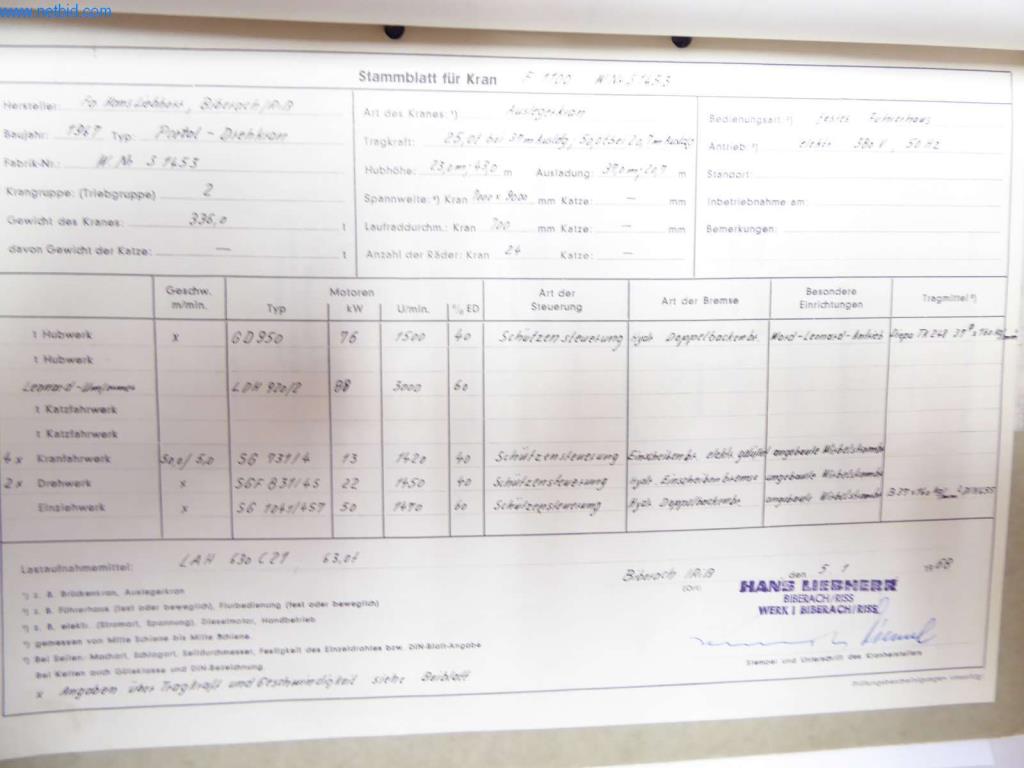 www.netbid.com
Stammblatt für Kran F 1100 W Nr S 1453
Hersteller: Fa Hans Liebherr, Biberach/Riß
Baujahr: 1967 Typ: Portal-Drehkran
Fabrik-Nr.: W Nr S 1453
Krangruppe: (Triebgruppe) 2
Gewicht des Kranes: 336,0 t
davon Gewicht der Katze: — t
Art des Kranes: ¹) Auslegerkran
Tragkraft: 25,0t bei 37m Ausldg, 50,0t bei 20,7m Ausldg
Hubhöhe: 23,0m; 43,0 m Ausladung: 37,0m; 20,7 m
Spannweite: ⁴) Kran 7000 x 9000 mm Katze: — mm
Laufraddurchm.: Kran 700 mm Katze: — mm
Anzahl der Räder: Kran 24 Katze: —
Bedienungsart: ²) festes Führerhaus
Antrieb: ³) elektr 380 V, 50 Hz
Standort:
Inbetriebnahme am:
Bemerkungen:
Geschw. m/min. Motoren Typ kW U/min. % ED Art der Steuerung Art der Bremse Besondere Einrichtungen Tragmittel ⁵)
t Hubwerk x GD 950 76 1500 40 Schützensteuerung Hydr. Doppelbackenbr. Ward-Leonard-Antrieb Diepa
t Hubwerk
Leonard-Umformer LDH 920/2 88 3000 60
t Katzfahrwerk
t Katzfahrwerk
4x Kranfahrwerk 50,0/5,0 SG 731/4 13 1420 40 Schützensteuerung Einscheibenbr. elektr. gelüftet angebaute Wirbelstrombr.
2x Drehwerk x SGF 831/4S 22 1450 40 Schützensteuerung Hydr. Einscheibenbremse angebaute Wirbelstrombr.
Einziehwerk x SG 1041/4S7 50 1470 60 Schützensteuerung Hydr. Doppelbackenbr. angebaute Wirbelstrombr.
Lastaufnahmemittel: LAH 630 C21 63,0t
Biberach /Riß den 5 1 1968
(Ort)
HANS LIEBHERR
BIBERACH/RISS
WERK I BIBERACH/RISS
Stempel und Unterschrift des Kranherstellers
¹) z. B. Brückenkran, Auslegerkran
²) z. B. Führerhaus (fest oder beweglich), Flurbedienung (fest oder beweglich)
³) z. B. elektr. (Stromart, Spannung), Dieselmotor, Handbetrieb
⁴) gemessen von Mitte Schiene bis Mitte Schiene.
⁵) Bei Seilen: Machart, Schlagart, Seildurchmesser, Festigkeit des Einzeldrahtes bzw. DIN-Blatt-Angabe
Bei Ketten auch Güteklasse und DIN-Bezeichnung.
x Angaben über Tragkraft und Geschwindigkeit siehe Beiblatt